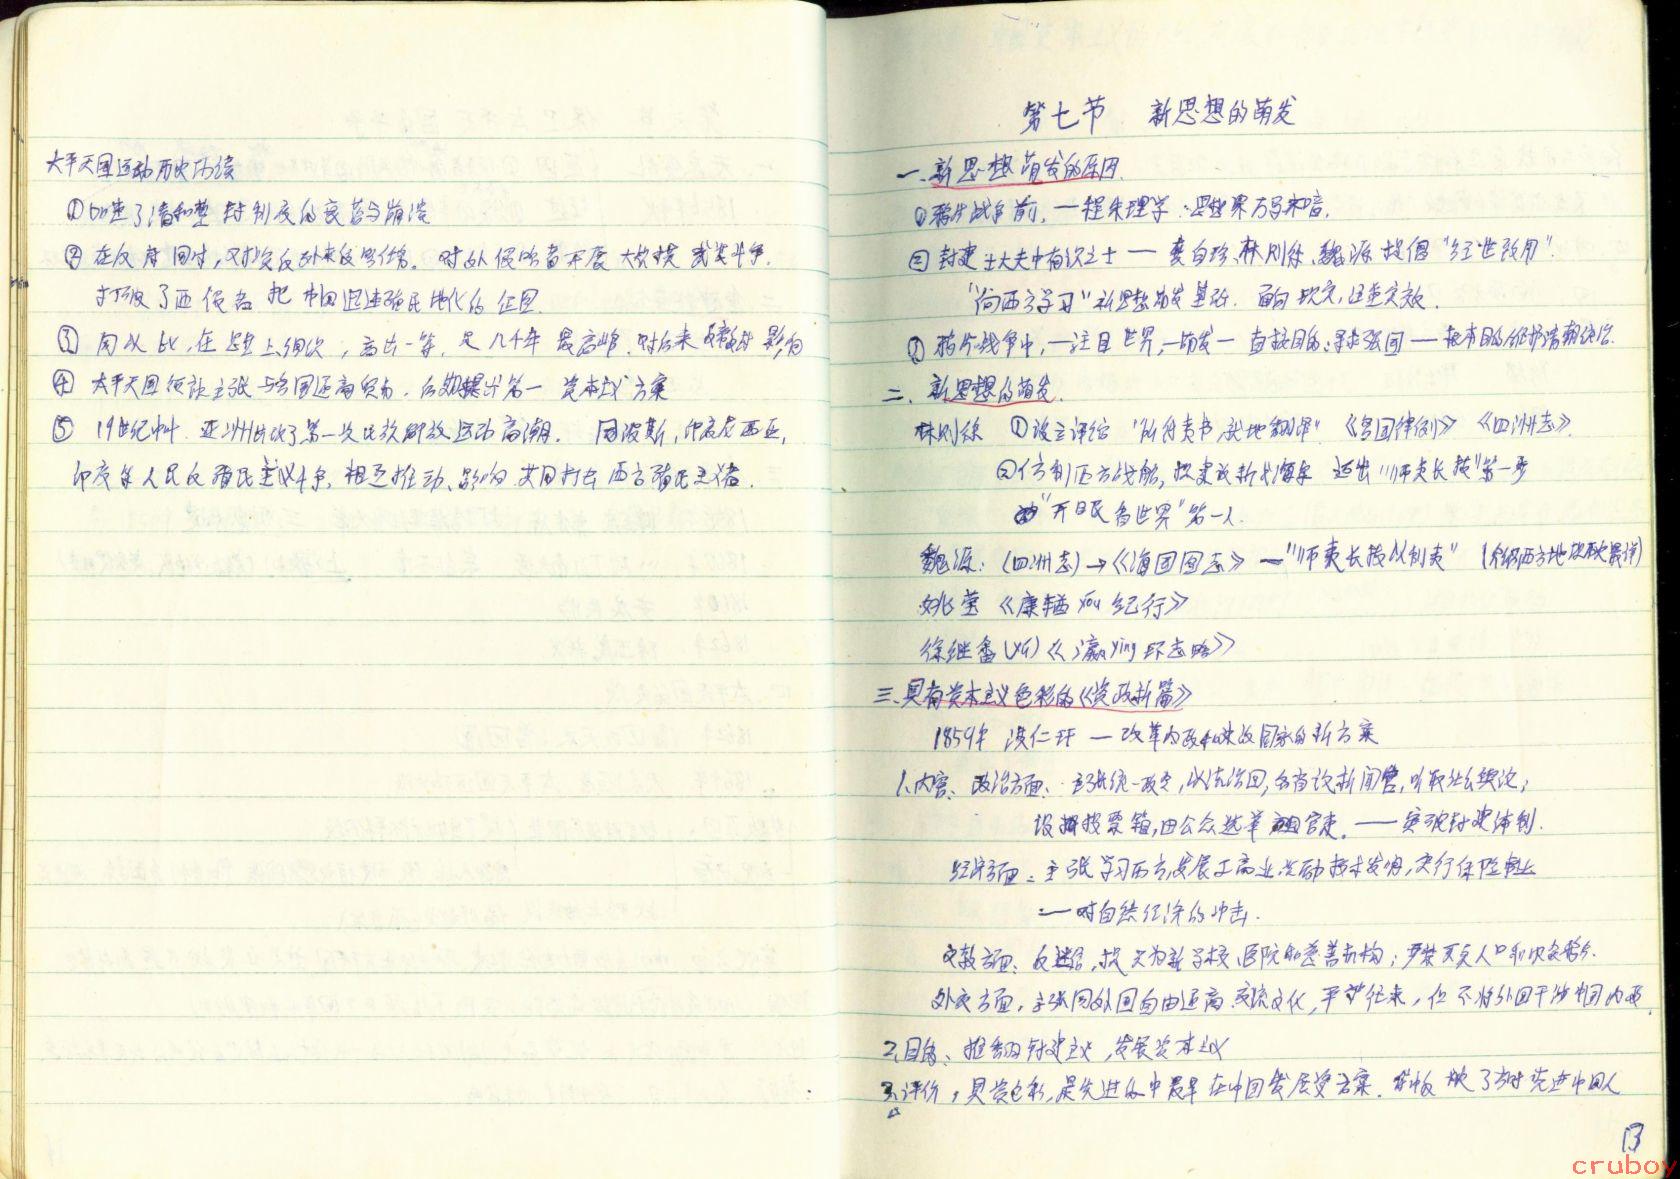 太平天国运动历史功绩
①加速了清和整 封制度的衰落与崩溃
②在反 同时，又担负反外来侵略任务。对外侵略者开展大规模武装斗争。
打破了西侵者把中国迅速殖民地化的企图
③ 同以比，在 上组织，高出一等，是几千年最高峰，对后来 影响
④ 太平天国领 主张与各国通商贸易，后期提出第一资本主义方案
⑤ 19世纪中叶 亚洲出现了第一次民族解放运动高潮。同波斯，印度尼西亚，
印度等人民反殖民主义斗争，相互推动、影响 共同打击西方殖民主义者。
第七节 新思想的萌发
一、新思想萌发的原因
①鸦片战争前，一程朱理学：思想界万马齐喑。
②封建士大夫中有识之士 — 龚自珍、林则徐、魏源 提倡“经世致用”
“向西方学习”新思想萌发基础．面向现实，注重实效．
③ 鸦片战争中，一注目世界，一萌发一 直接目的：寻求强国 — 根本目的：维护清朝统治．
二、新思想的萌发．
林则徐 ①设立译馆 “所得夷书，就地翻译” 《各国律例》 《四洲志》
②仿制西方战船，拟建成新式海军 迈出“师夷长技”第一步
“开眼看世界”第一人．
魏源：(四洲志)→《海国图志》 —“师夷长技以制夷” (介绍西方地 最详)
姚莹 《康輶you纪行》
徐继畬(yú)《瀛ying环志略》
三、具有资本主义色彩的《资政新篇》
1859年 洪仁玕 — 改革内政和建设国家的新方案
1、内容、政治方面：主张统一政令，以法治国，各省设新闻官，听取社会舆论；
设投票箱，由公众选举官吏．—— 突破封建体制．
经济方面：主张学习西方，发展工商业，奖励技术发明，实行保险事业
—对自然经济的冲击．
文教方面：反迷信，提 为新学校、医院和慈善机构；严禁买卖人口和 ．
外交方面，主张同外国自由通商，交流文化，平等往来，但不准外国干涉中国内政．
2、目的、 封建主义，发展资本主义
3、评价，具资色彩，是先进的中 最早在中国发展资方案． 映了当时先进中国人
13
cruboy